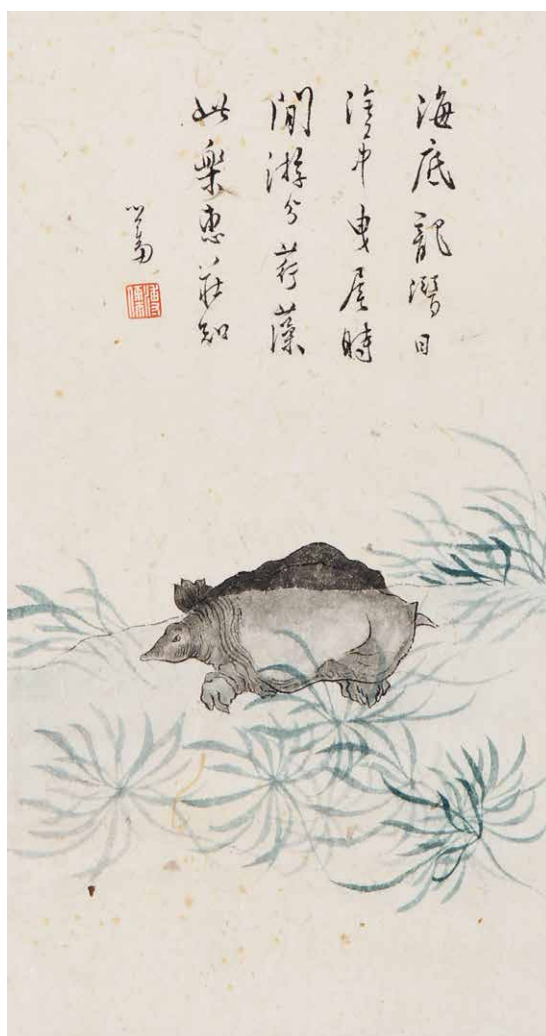 海底龍潛日
塗中曳尾時
閒游分荇藻
此樂惠莊知
心畬
溥儒